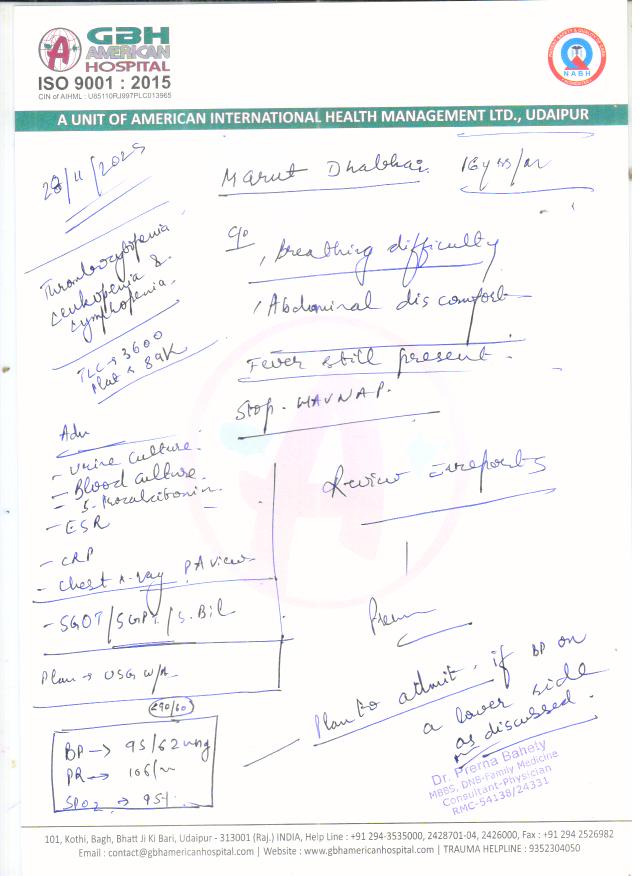 GBH
AMERICAN
HOSPITAL
ISO 9001 : 2015
CIN of AIHML : U85110RJ997PLC013965
NABH
A UNIT OF AMERICAN INTERNATIONAL HEALTH MANAGEMENT LTD., UDAIPUR
28/11/2025
Marut Dhabhai 16yrs/m
Thrombocytopenia
Leukopenia &
Lymphopenia.
TLC → 3600
Plat → 89K
c/o
, Breathing difficulty
, Abdominal discomfort
Fever still present.
Stop - HAVNAP.
Adv
- Urine culture.
- Blood culture.
- S. Procalcitonin.
- ESR
- CRP
- Chest X-ray PA view
- SGOT/SGPT/S. Bil
Plan → USG W/A
Review c reports
Prerna
Plan to admit, if BP on
a lower side
as discussed.
90/60
BP → 95/62 mmg
PR → 106/m
SPO2 → 95%
Dr. Prerna Bahety
MBBS, DNB-Family Medicine
Consultant-Physician
RMC-54138/24331
101, Kothi, Bagh, Bhatt Ji Ki Bari, Udaipur - 313001 (Raj.) INDIA, Help Line : +91 294-3535000, 2428701-04, 2426000, Fax : +91 294 2526982
Email : contact@gbhamericanhospital.com | Website : www.gbhamericanhospital.com | TRAUMA HELPLINE : 9352304050